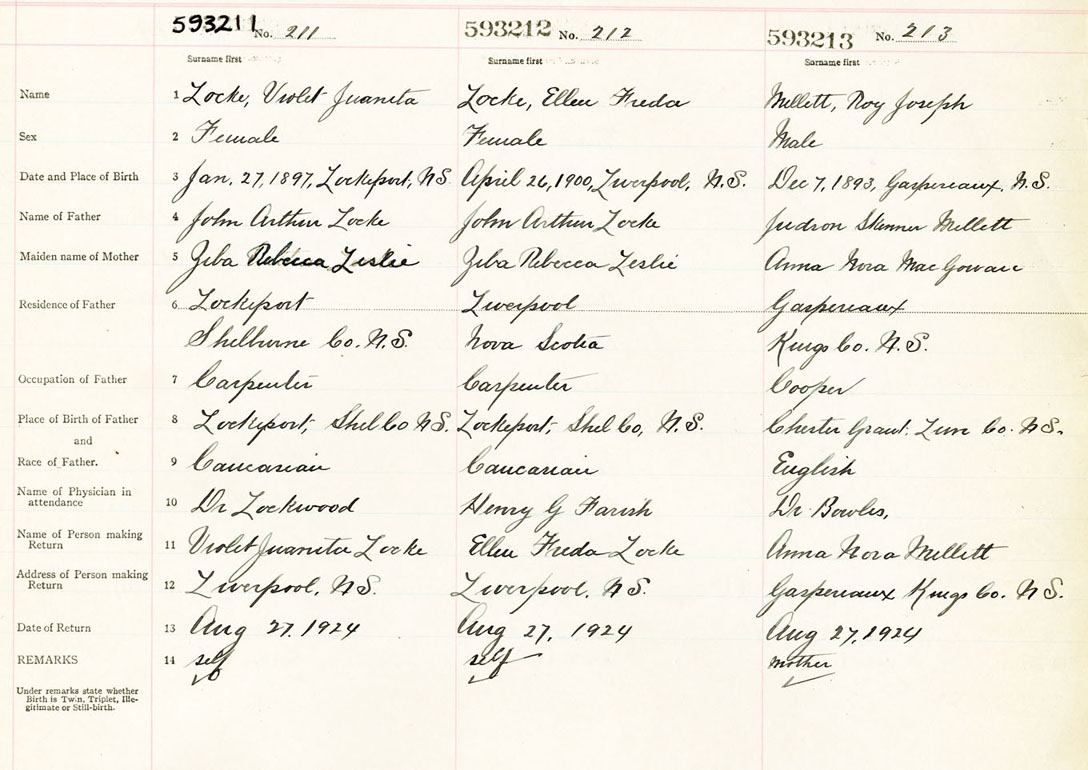 593211 No. 211 593212 No. 212 593213 No. 213
Surname first Surname first Surname first
Name 1 Locke, Violet Juanita Locke, Ellen Freda Mellett, Roy Joseph
Sex 2 Female Female Male
Date and Place of Birth 3 Jan. 27, 1897, Lockeport, N.S. April 26, 1900, Liverpool, N.S. Dec 7, 1893, Gaspereaux, N.S.
Name of Father 4 John Arthur Locke John Arthur Locke Judson Skinner Mellett
Maiden name of Mother 5 Ziba Rebecca Leslie Ziba Rebecca Leslie Anna Nora MacGowan
Residence of Father 6 Lockeport Liverpool Gaspereaux
Shelburne Co. N.S. Nova Scotia Kings Co. N.S.
Occupation of Father 7 Carpenter Carpenter Cooper
Place of Birth of Father 8 Lockeport, Shel Co N.S. Lockeport, Shel Co, N.S. Chester Grant. Lun Co. N.S.
and
Race of Father. 9 Caucasian Caucasian English
Name of Physician in
attendance 10 Dr Lockwood Henry G Farish Dr. Bowles,
Name of Person making
Return 11 Violet Juanita Locke Ellen Freda Locke Anna Nora Mellett
Address of Person making
Return 12 Liverpool, N.S. Liverpool, N.S. Gaspereaux Kings Co. N.S.
Date of Return 13 Aug 27, 1924 Aug 27, 1924 Aug 27, 1924
REMARKS 14 self self mother
Under remarks state whether
Birth is Twin, Triplet, Ille-
gitimate or Still-birth.